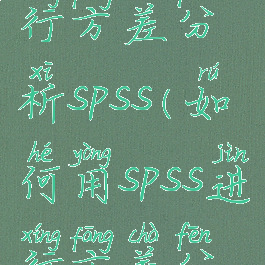 行方差分
xī rú
析SPSS(如
hé yòng jìn
何用SPSS进
xíng fāng chà fēn
行方差分